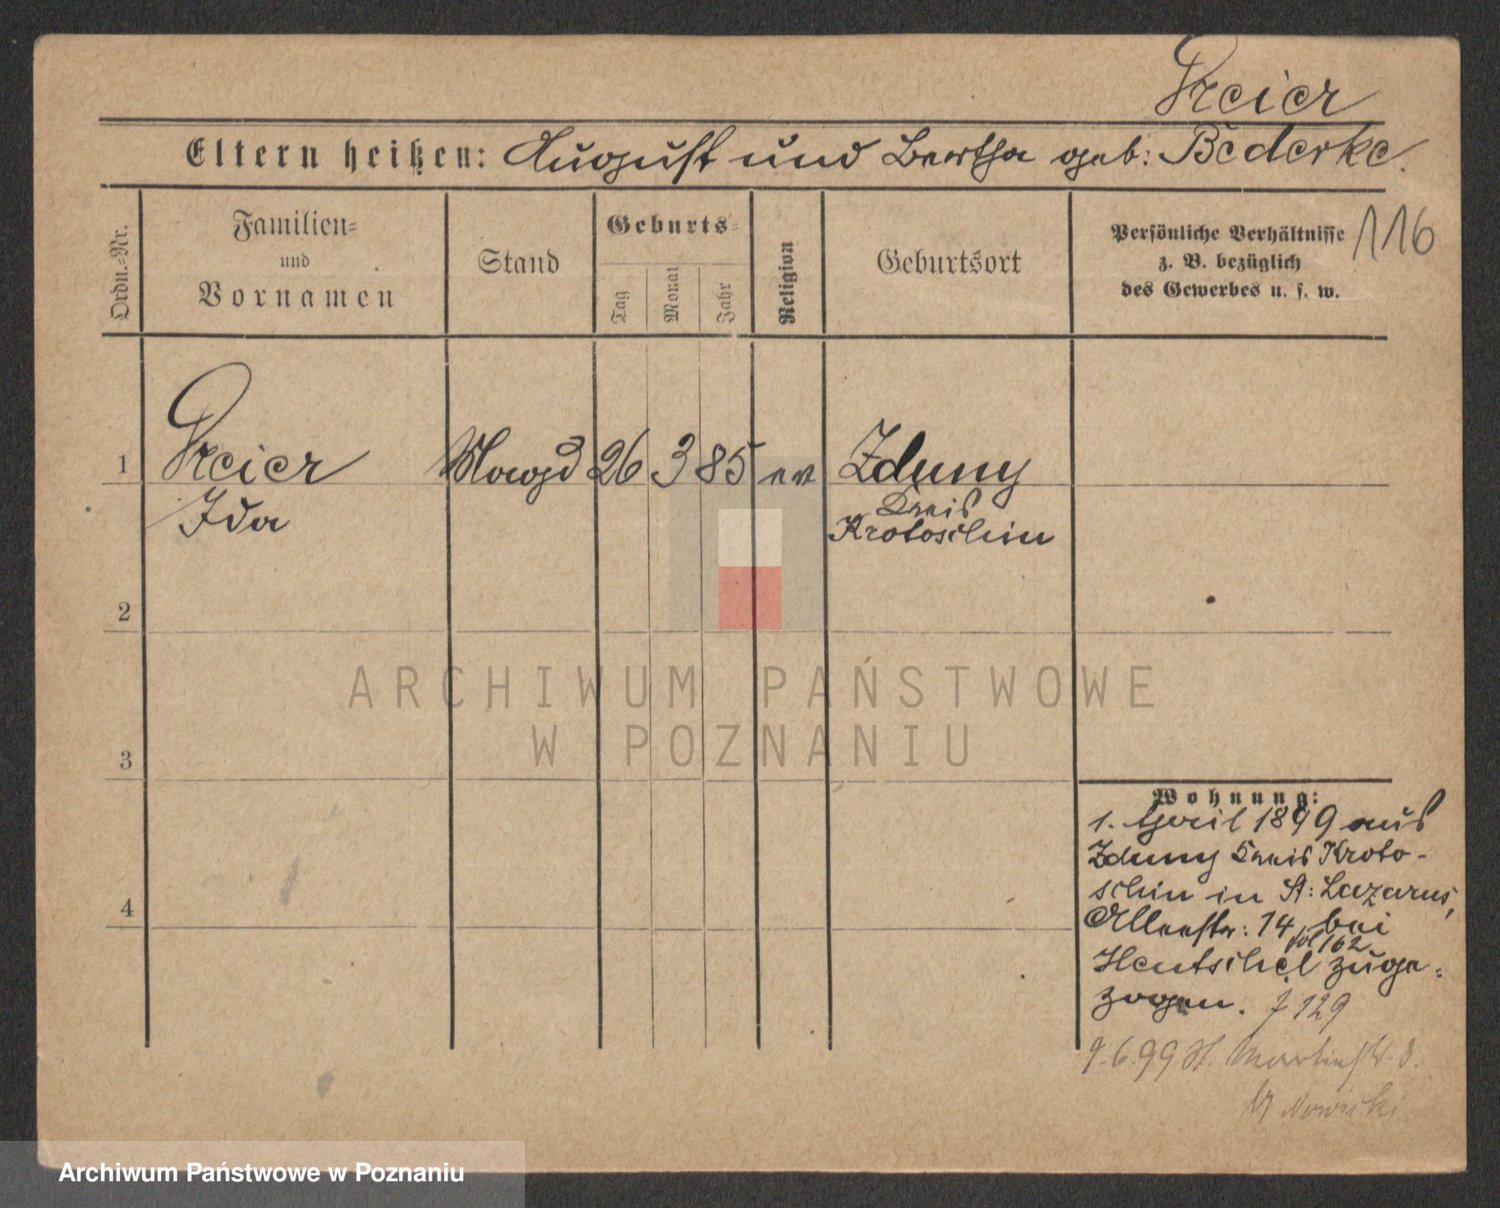 Preier
Eltern heißen: August und Bertha geb: Bederke.
Ordn.-Nr.
Familien-
und
Vornamen
Stand
Geburts-
Tag
Monat
Jahr
Religion
Geburtsort
Persönliche Verhältnisse
z. B. bezüglich
des Gewerbes u. s. w.
116
1
Preier
Ida
Magd
26
3
85
ev
Zduny
Kreis
Krotoschin
2
3
4
ARCHIWUM PAŃSTWOWE
W POZNANIU
Wohnung:
1. April 1899 aus
Zduny Kreis Kroto-
schin in St: Lazarus,
Alleestr: 14, bei
fol 162
Hentschel zuge-
zogen. f 129
9.6.99 St. Martinstr.
Nowicki
Archiwum Państwowe w Poznaniu